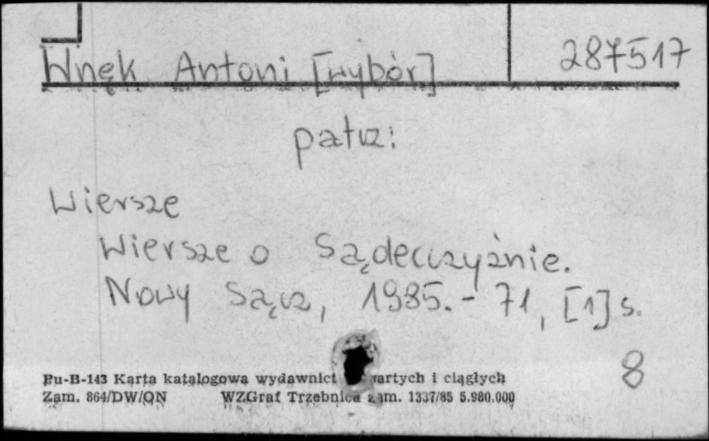 Wnęk Antoni [wybór] 287517
patrz:
Wiersze
Wiersze o Sądecczyźnie.
Nowy Sącz, 1985. - 71, [1] s.
8
Pu-B-143 Karta katalogowa wydawnict artych i ciągłych
Zam. 864/DW/ON WZGraf Trzebnica zam. 1337/85 5.980.000